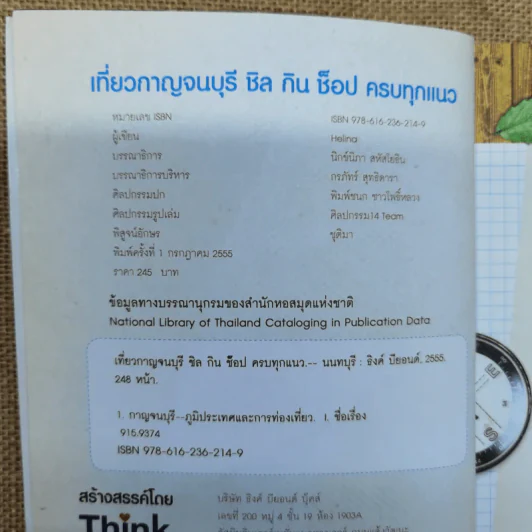 เที่ยวกาญจนบุรี ชิล กิน ช็อป ครบทุกแนว
หมายเลข ISBN ISBN 978-616-236-214-9
ผู้เขียน Helina
บรรณาธิการ นิกข์นิภา สหัสโยธิน
บรรณาธิการบริหาร กรภัทร์ สุทธิดารา
ศิลปกรรมปก พิมพ์ชนก ชาวโพธิ์หลวง
ศิลปกรรมรูปเล่ม ศิลปกรรม14 Team
พิสูจน์อักษร ชุติมา
พิมพ์ครั้งที่ 1 กรกฎาคม 2555
ราคา 245 บาท
ข้อมูลทางบรรณานุกรมของสำนักหอสมุดแห่งชาติ
National Library of Thailand Cataloging in Publication Data
เที่ยวกาญจนบุรี ชิล กิน ช็อป ครบทุกแนว.-- นนทบุรี : ธิงค์ บียอนด์, 2555.
248 หน้า.
1. กาญจนบุรี--ภูมิประเทศและการท่องเที่ยว. I. ชื่อเรื่อง
915.9374
ISBN 978-616-236-214-9
สร้างสรรค์โดย บริษัท ธิงค์ บียอนด์ บุ๊คส์
Think เลขที่ 200 หมู่ 4 ชั้น 19 ห้อง 1903A